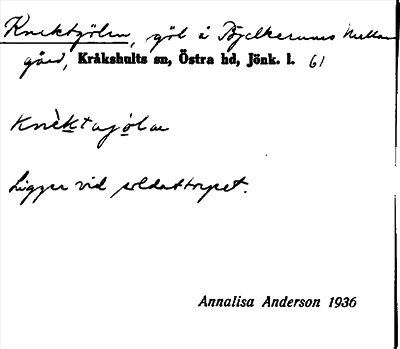 Knektgölen, göl å Bjelkerums Mellan
gård, Kråkshults sn, Östra hd, Jönk. l. 61
Knèktajölan
Ligger vid soldattorpet.
Annalisa Anderson 1936